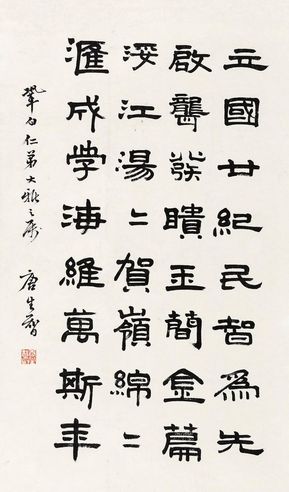 立國廿紀民智為先
啟聾發瞶玉簡金篇
綏江湯〻賀嶺綿〻
滙成学海維萬斯年
鞏白仁弟大雅之属 唐生智